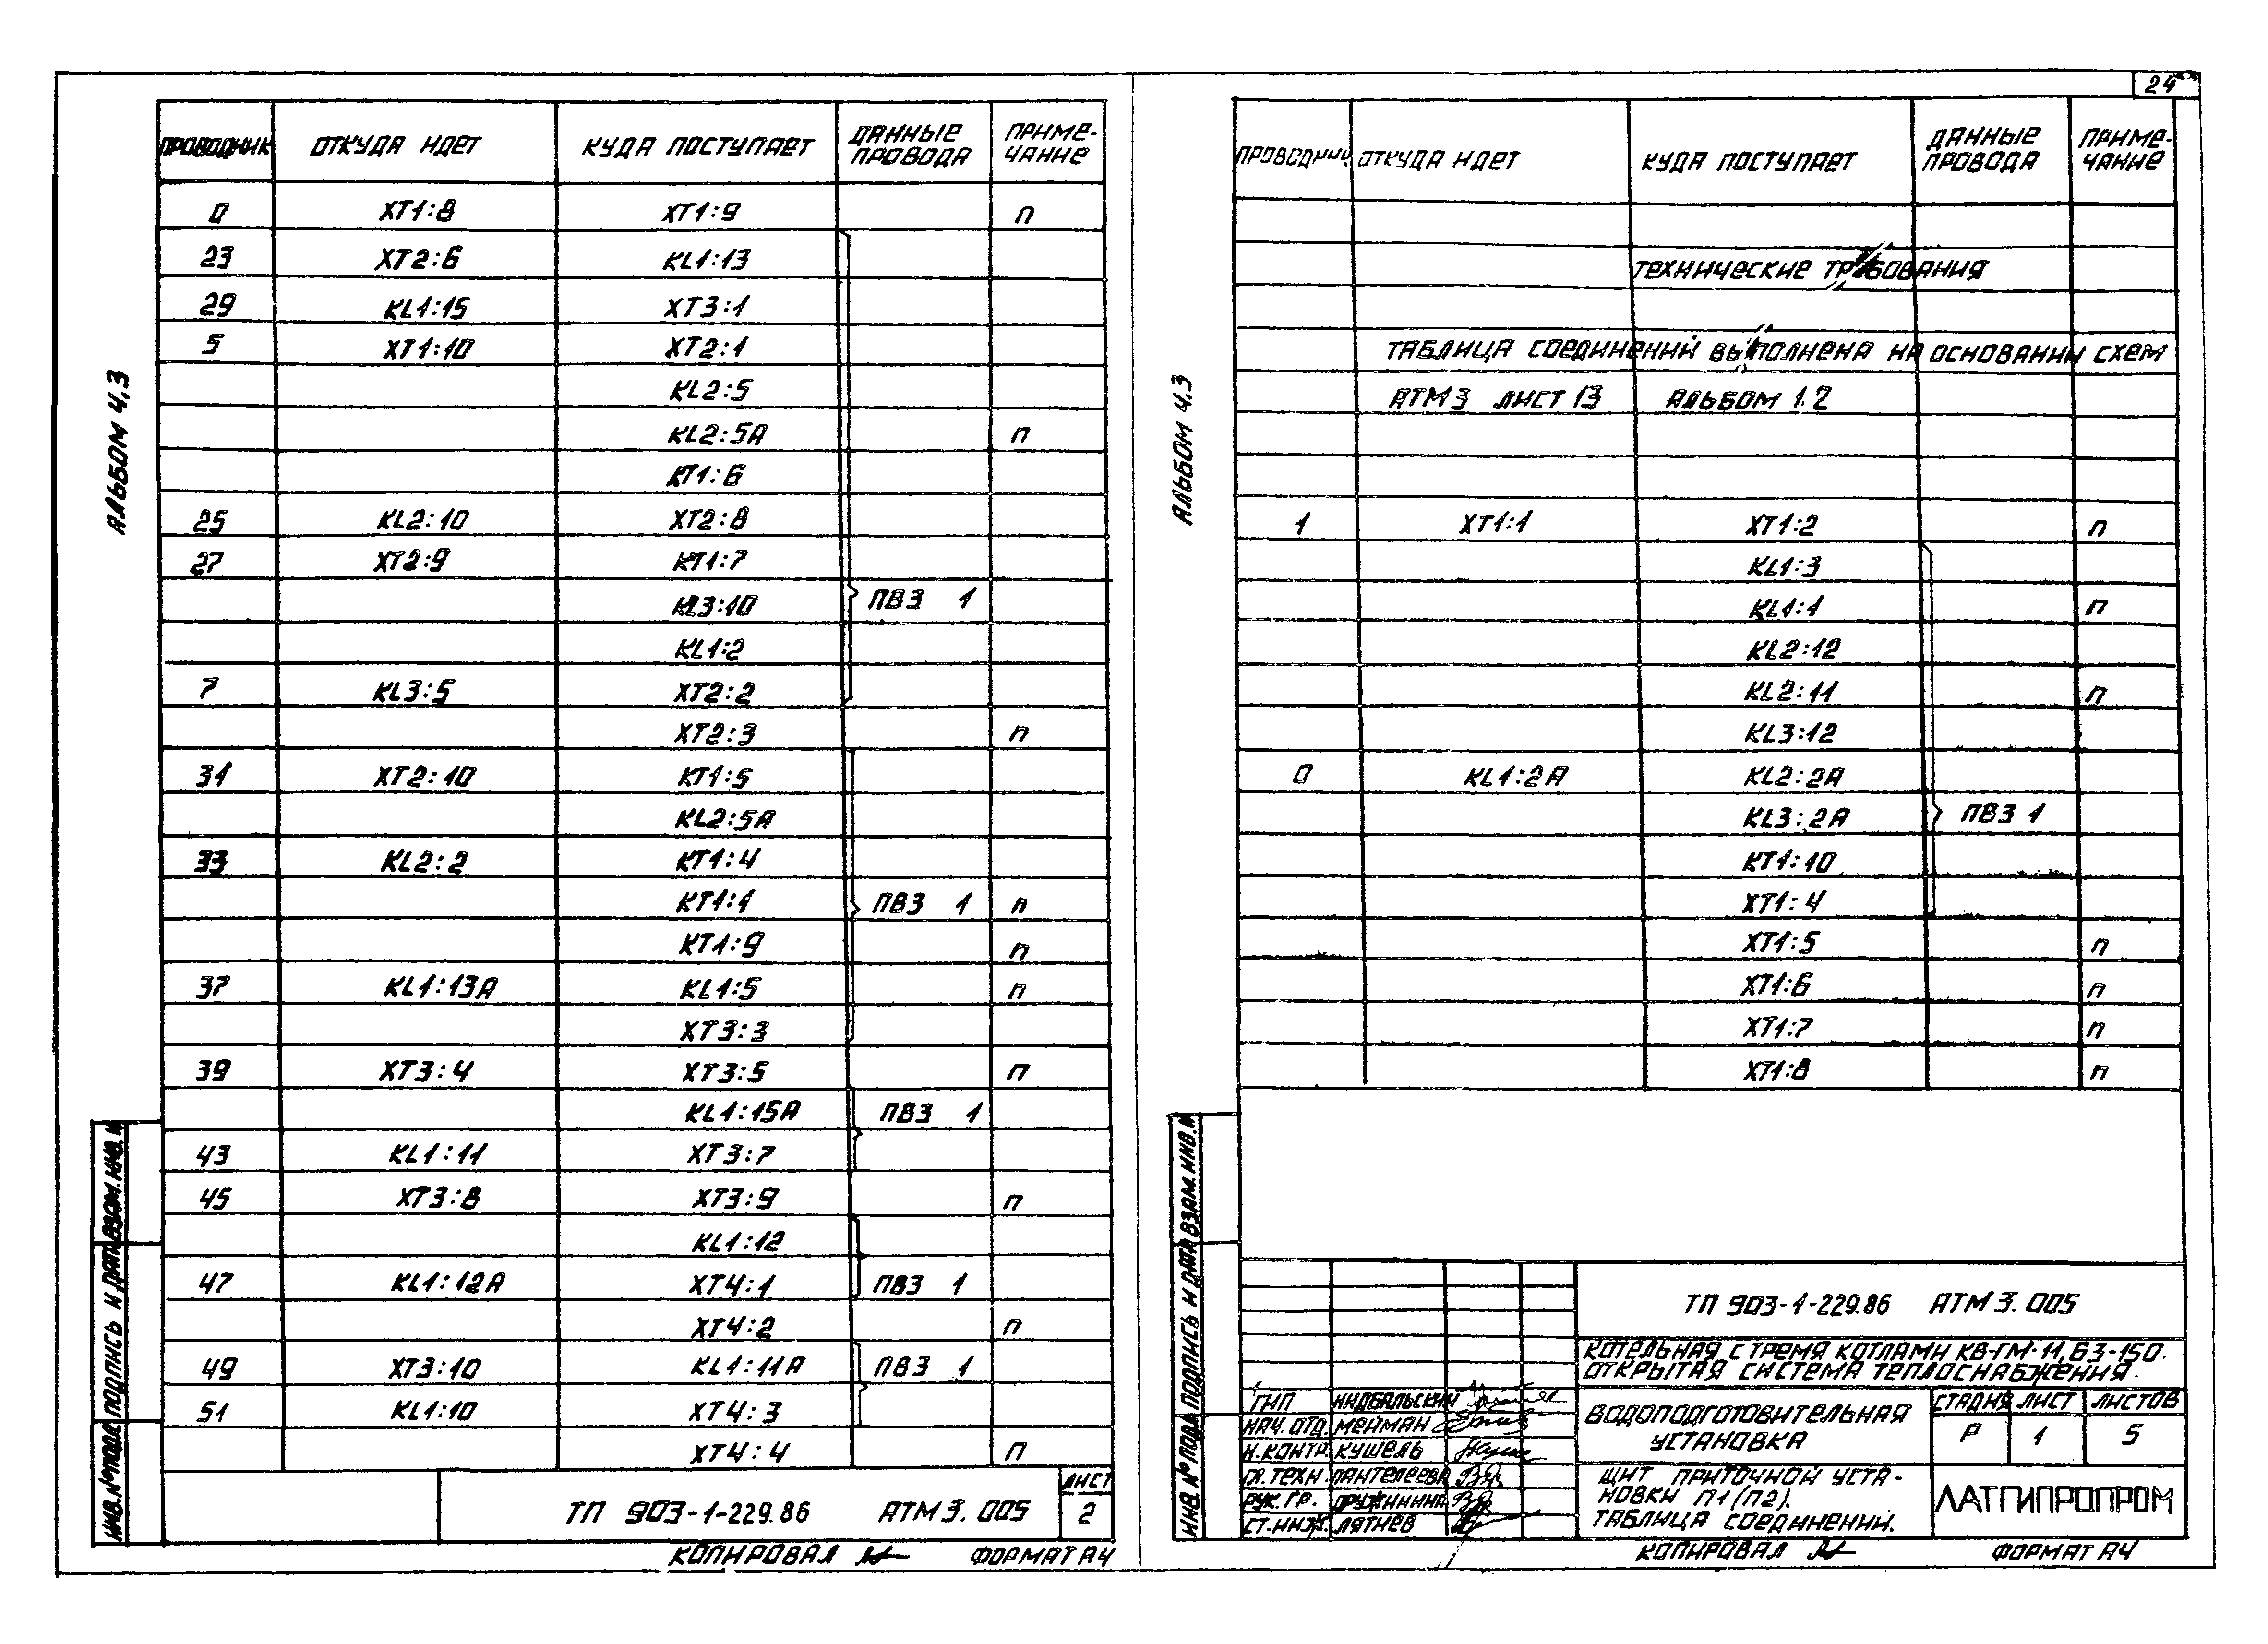 24
АЛЬБОМ 4.3
ПРОВОДНИК ОТКУДА ИДЕТ КУДА ПОСТУПАЕТ ДАННЫЕ ПРОВОДА ПРИМЕ-ЧАНИЕ
0 XT1:8 XT1:9 П
23 XT2:6 KL1:13
29 KL1:15 XT3:1
5 XT1:10 XT2:1
KL2:5
KL2:5A П
KT1:6
25 KL2:10 XT2:8
27 XT2:9 KT1:7
KL3:10 ПВ3 1
KL1:2
7 KL3:5 XT2:2
XT2:3 П
31 XT2:10 KT1:5
KL2:5A
33 KL2:2 KT1:4
KT1:1 ПВ3 1 П
KT1:9 П
37 KL1:13A KL1:5 П
XT3:3
39 XT3:4 XT3:5 П
KL1:15A ПВ3 1
43 KL1:11 XT3:7
45 XT3:8 XT3:9 П
KL1:12
47 KL1:12A XT4:1 ПВ3 1
XT4:2 П
49 XT3:10 KL1:11A ПВ3 1
51 KL1:10 XT4:3
XT4:4 П
ИНВ.№ПОДЛ ПОДПИСЬ И ДАТА ВЗАМ.ИНВ.№
ТП 903-1-229.86 АТМ3.005
ЛИСТ
2
КОПИРОВАЛ
ФОРМАТ А4
АЛЬБОМ 4.3
ПРОВОДНИК ОТКУДА ИДЕТ КУДА ПОСТУПАЕТ ДАННЫЕ ПРОВОДА ПРИМЕ-ЧАНИЕ
ТЕХНИЧЕСКИЕ ТРЕБОВАНИЯ
ТАБЛИЦА СОЕДИНЕНИЙ ВЫПОЛНЕНА НА ОСНОВАНИИ СХЕМ
АТМ3 ЛИСТ 13 АЛЬБОМ 1.2
1 XT1:1 XT1:2 П
KL1:3
KL1:1 П
KL2:12
KL2:11 П
KL3:12
0 KL1:2A KL2:2A
KL3:2A ПВ3 1
KT1:10
XT1:4
XT1:5 П
XT1:6 П
XT1:7 П
XT1:8 П
ИНВ.№ПОДЛ ПОДПИСЬ И ДАТА ВЗАМ.ИНВ.№
ТП 903-1-229.86 АТМ3.005
КОТЕЛЬНАЯ С ТРЕМЯ КОТЛАМИ КВ-ГМ-11,63-150.
ОТКРЫТАЯ СИСТЕМА ТЕПЛОСНАБЖЕНИЯ.
ГИП
НАЧ.ОТД. МЕЙМАН
Н.КОНТР. КУШЕЛЬ
ГЛ.ТЕХН. ПАНТЕЛЕЕВА
РУК.ГР. ДРУЖИНИНА
СТ.ИНЖ. ЛЯТИЕВ
ВОДОПОДГОТОВИТЕЛЬНАЯ
УСТАНОВКА
СТАДИЯ ЛИСТ ЛИСТОВ
Р 1 5
ЩИТ ПРИТОЧНОЙ УСТА-
НОВКИ П1(П2).
ТАБЛИЦА СОЕДИНЕНИЙ.
ЛАТГИПРОПРОМ
КОПИРОВАЛ
ФОРМАТ А4